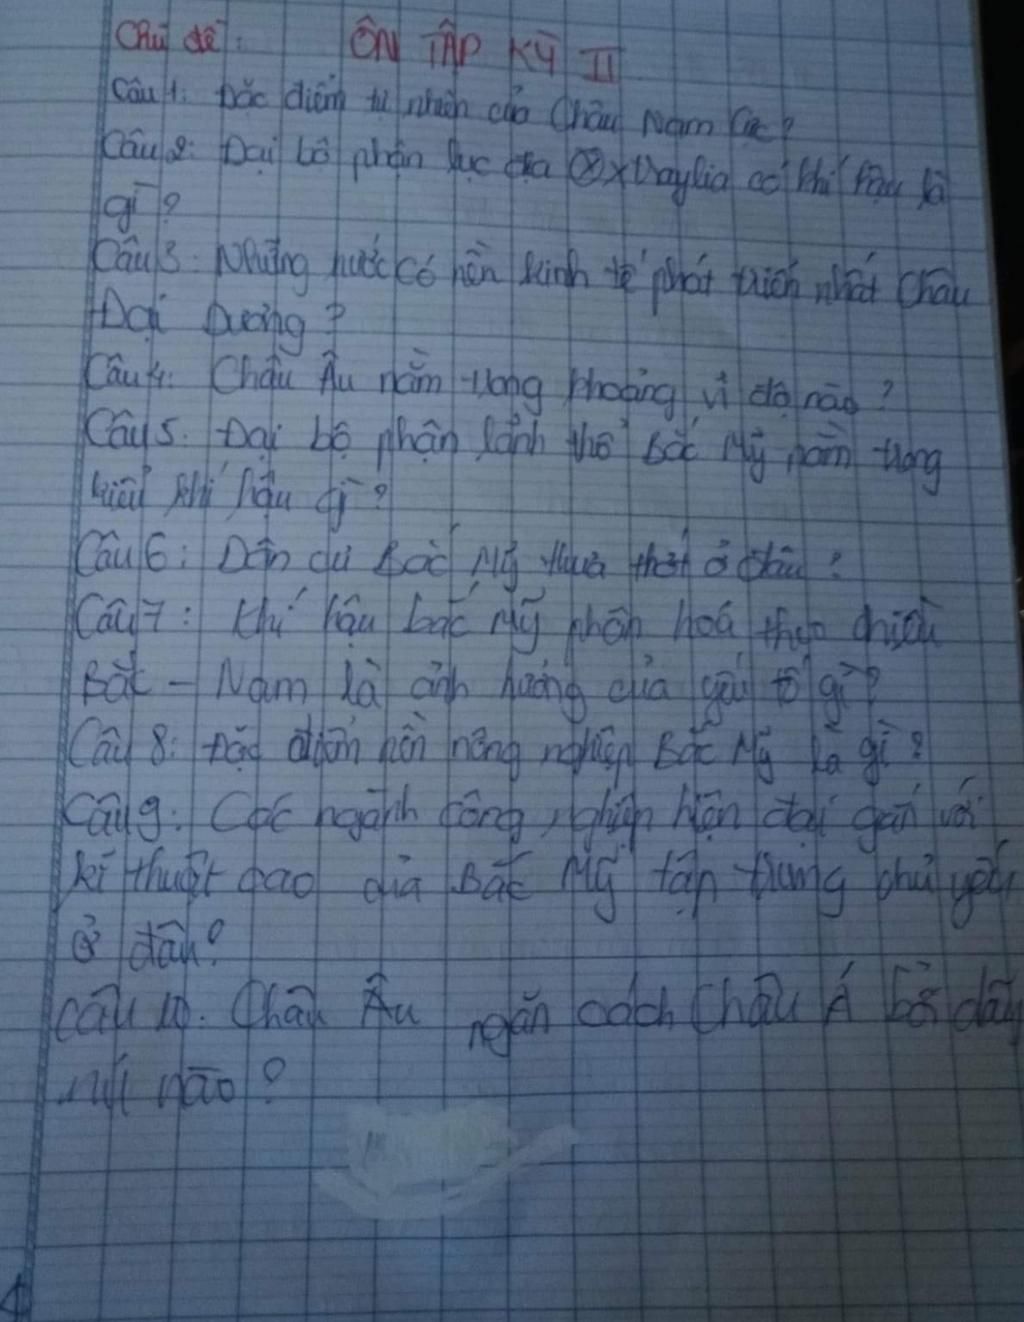 Chủ đề: ÔN TẬP KỲ II
Câu 1: Đặc điểm tự nhiên của Châu Nam Cực?
Câu 2: Đại bộ phận lục địa Ôxtraylia có khí hậu là
gì?
Câu 3: Những nước có nền kinh tế phát triển nhất Châu
Đại Dương?
Câu 4: Châu Âu nằm trong khoảng vĩ độ nào?
Câu 5. Đại bộ phận lãnh thổ Bắc Mỹ nằm trong
kiểu khí hậu gì?
Câu 6: Dân cư Bắc Mỹ thưa thớt ở đâu?
Câu 7: Khí hậu bắc Mỹ phân hoá theo chiều
Bắc - Nam là ảnh hưởng của yếu tố gì?
Câu 8: Đặc điểm nền nông nghiệp Bắc Mỹ là gì?
Câu 9: Các ngành công nghiệp hiện đại gắn với
kĩ thuật cao của Bắc Mỹ tập trung chủ yếu
ở đâu?
Câu 10. Châu Âu ngăn cách Châu Á bởi dãy
núi nào?